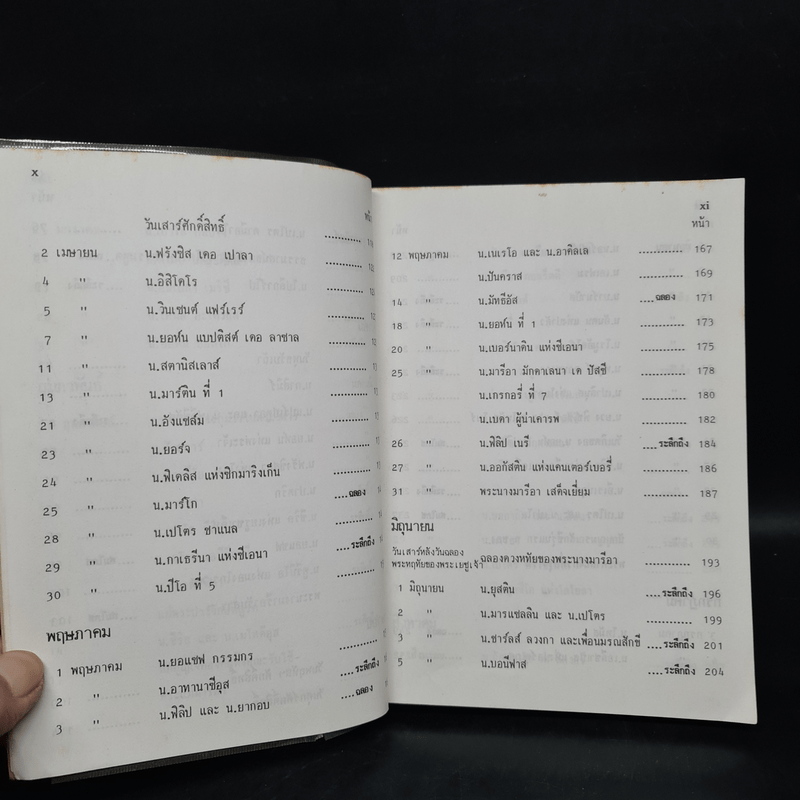 x
หน้า
วันเสาร์ศักดิ์สิทธิ์ ............
2 เมษายน น.ฟรังซิส เดอ เปาลา ............
4 " น.อิสิโดโร ............
5 " น.วินเซนต์ แฟร์เรร์ ............
7 " น.ยอห์น แบปติสต์ เดอ ลาซาล ............
11 " น.สตานิสเลาส์ ............
13 " น.มาร์ติน ที่ 1 ............
21 " น.อังแซล์ม ............
23 " น.ยอร์จ ............
24 " น.ฟิเดลิส แห่งซิกมาริงเก็น ............
25 " น.มาร์โก ....ฉลอง
28 " น.เปโตร ชาแนล ............
29 " น.กาเธรีนา แห่งซีเอนา ....ระลึกถึง
30 " น.ปีโอ ที่ 5 ............
พฤษภาคม
1 พฤษภาคม น.ยอแซฟ กรรมกร ............
2 " น.อาทานาซีอุส ....ระลึกถึง
3 " น.ฟิลิป และ น.ยากอบ ....ฉลอง
xi
หน้า
12 พฤษภาคม น.เนเรโอ และ น.อาคิลเล ............ 167
น.ปันคราส ............ 169
14 " น.มัทธีอัส ....ฉลอง 171
18 " น.ยอห์น ที่ 1 ............ 173
20 " น.เบอร์นาดิน แห่งซีเอนา ............ 175
25 " น.มารีอา มักดาเลนา เด ปัสซี ............ 178
น.เกรกอรี่ ที่ 7 ............ 180
น.เบดา ผู้น่าเคารพ ............ 182
26 " น.ฟิลิป เนรี ....ระลึกถึง 184
27 " น.ออกัสติน แห่งแคนเตอร์เบอรี่ ............ 186
31 " พระนางมารีอา เสด็จเยี่ยม ............ 187
มิถุนายน
วันเสาร์หลังวันฉลอง
พระหฤทัยของพระเยซูเจ้า ฉลองดวงหทัยของพระนางมารีอา ............ 193
1 มิถุนายน น.ยุสติน ....ระลึกถึง 196
2 " น.มารแชลลิน และ น.เปโตร ............ 199
3 " น.ชาร์ลส์ ลวงกา และเพื่อนมรณสักขี ....ระลึกถึง 201
5 " น.บอนีฟาส ....ระลึกถึง 204